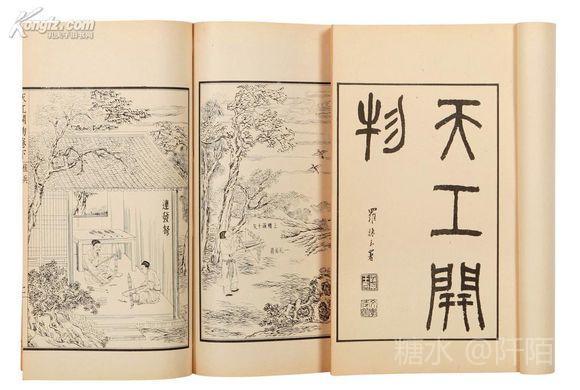 Kongfz.com
孔夫子旧书网
天工開
物
羅振玉署
連發弩
天工開物卷下
糖水 @阡陌